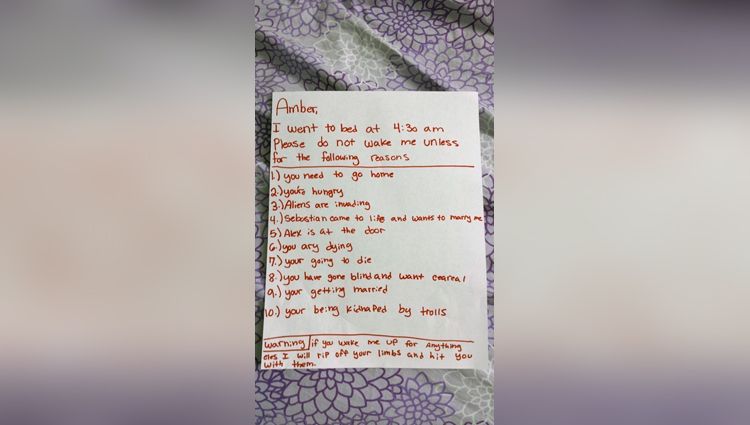 Amber,
I went to bed at 4:30 am
Please do not wake me unless
for the following reasons
1.) you need to go home
2.) you're hungry
3.) Aliens are invading
4.) Sebastian came to life and wants to marry me
5) Alex is at the door
6.) you ary dying
7.) your going to die
8.) you have gone blind and want ceareal
9.) your getting married
10.) your being kidnaped by trolls
warning if you wake me up for anything
eles I will rip off your limbs and hit you
with them.